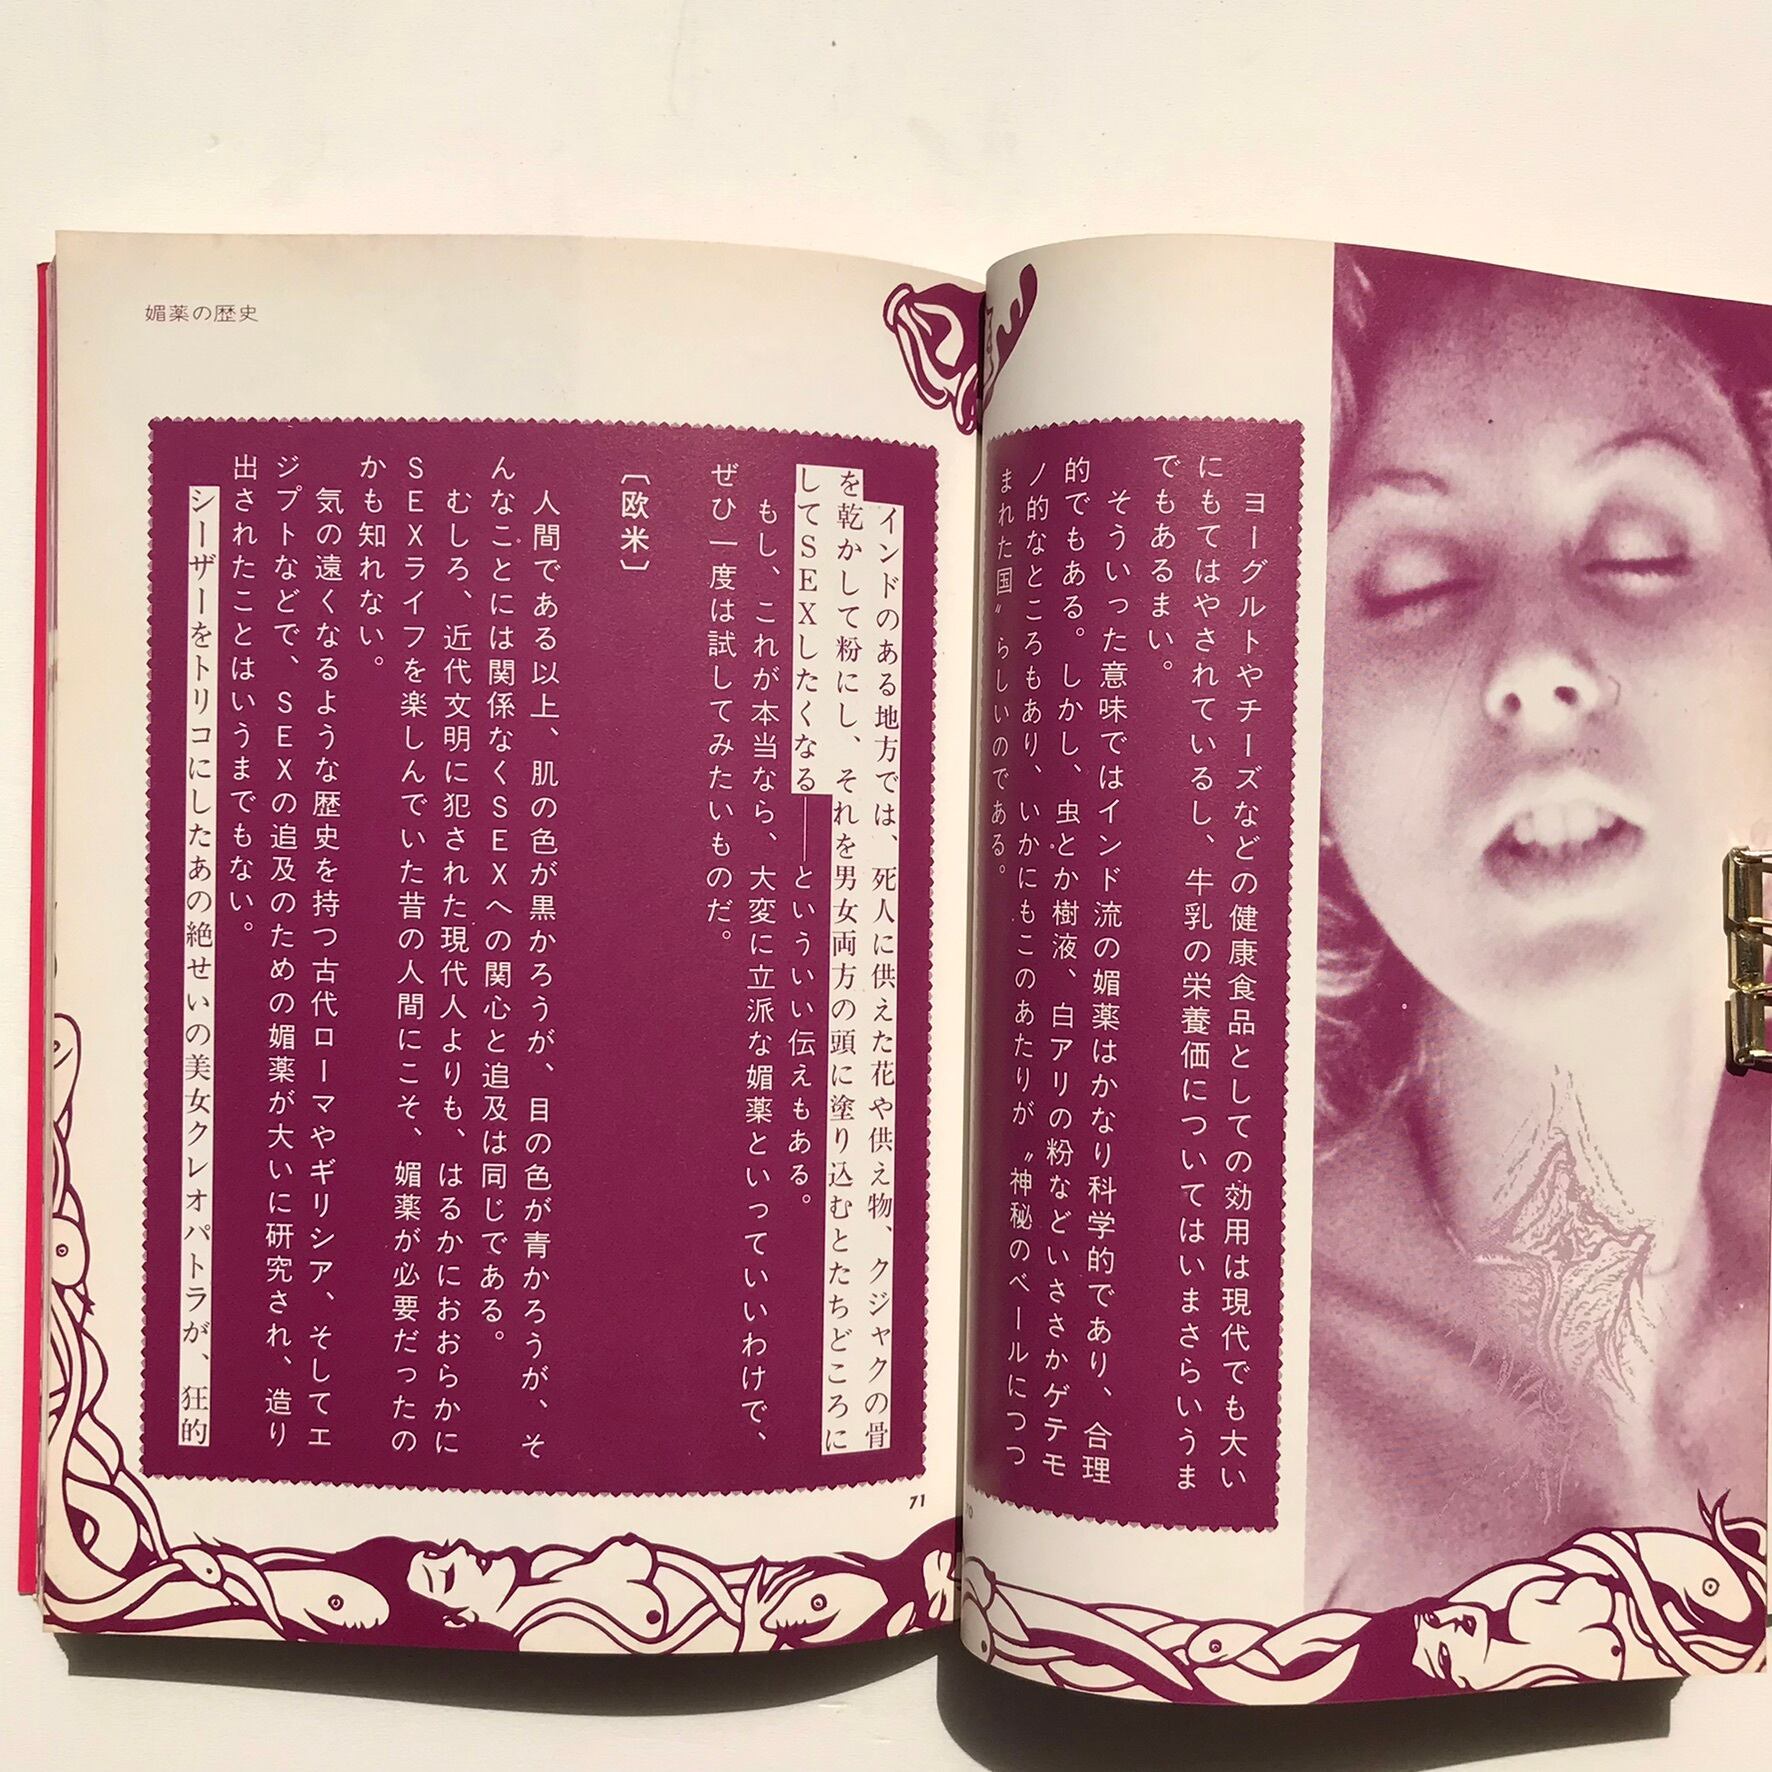 ヨーグルトやチーズなどの健康食品としての効用は現代でも大い
にもてはやされているし、牛乳の栄養価についてはいまさらいうま
でもあるまい。
そういった意味ではインド流の媚薬はかなり科学的であり、合理
的でもある。しかし、虫とか樹液、白アリの粉などいささかゲテモ
ノ的なところもあり、いかにもこのあたりが〝神秘のベールにつつ
まれた国〟らしいのである。
70
媚薬の歴史
インドのある地方では、死人に供えた花や供え物、クジャクの骨
を乾かして粉にし、それを男女両方の頭に塗り込むとたちどころに
してSEXしたくなる――といういい伝えもある。
もし、これが本当なら、大変に立派な媚薬といっていいわけで、
ぜひ一度は試してみたいものだ。
〔欧米〕
人間である以上、肌の色が黒かろうが、目の色が青かろうが、そ
んなことには関係なくSEXへの関心と追及は同じである。
むしろ、近代文明に犯された現代人よりも、はるかにおおらかに
SEXライフを楽しんでいた昔の人間にこそ、媚薬が必要だったの
かも知れない。
気の遠くなるような歴史を持つ古代ローマやギリシア、そしてエ
ジプトなどで、SEXの追及のための媚薬が大いに研究され、造り
出されたことはいうまでもない。
シーザーをトリコにしたあの絶せいの美女クレオパトラが、狂的
71